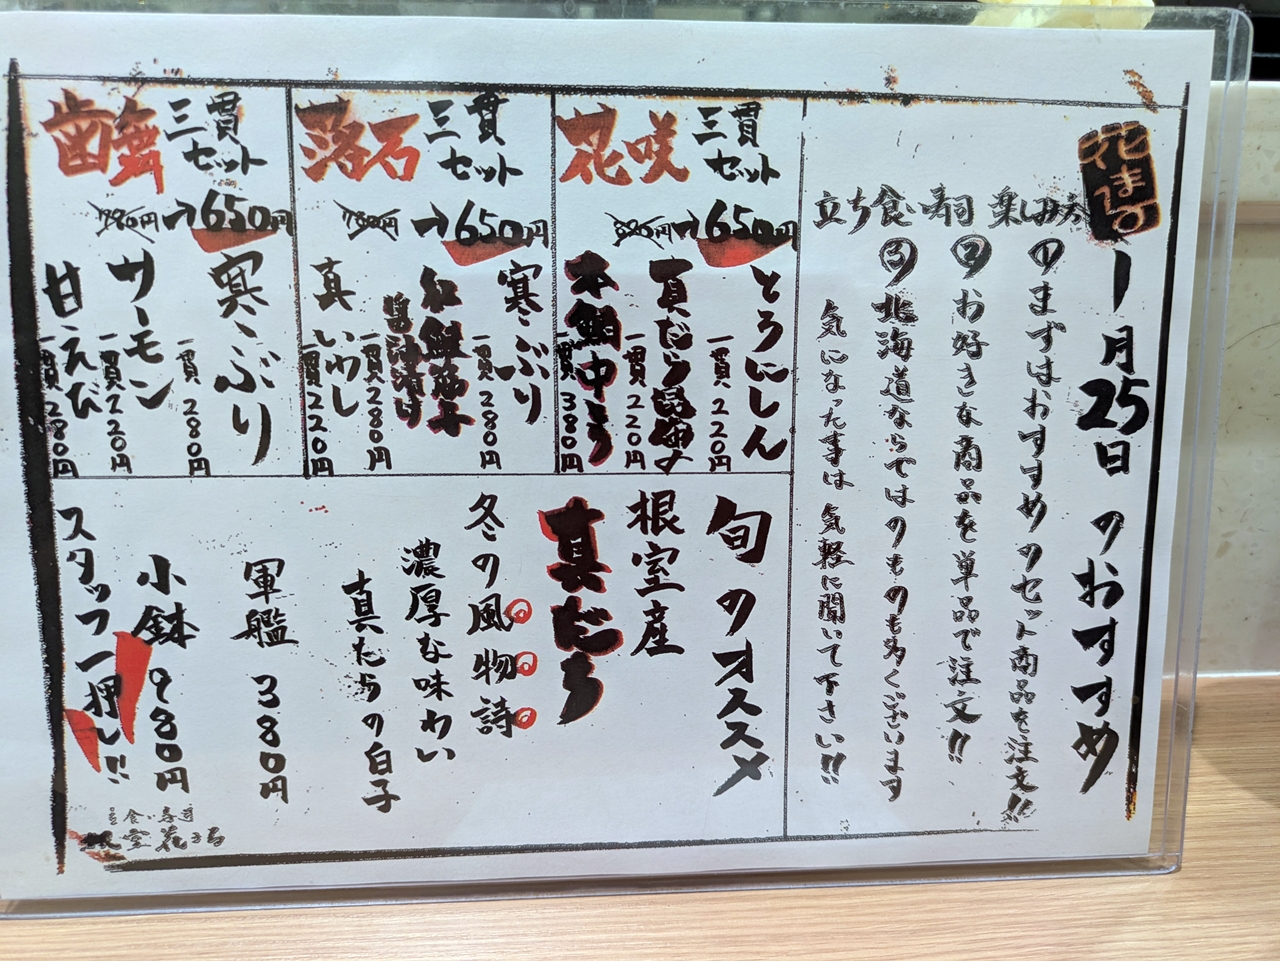 花まる
1月25日のおすすめ
立ち食い寿司 楽しみ方
①まずはおすすめのセット商品を注文!!
②お好きな商品を単品で注文!!
③北海道ならではのものも多くございます
気になった事は気軽に聞いて下さい!!
花咲 三貫セット
820円→650円
とろにしん
一貫 220円
真だら昆布〆
一貫 220円
本鮪中とろ
一貫 380円
落石 三貫セット
780円→650円
寒ぶり
一貫 280円
紅鮭筋子醤油漬け
一貫 280円
真いわし
一貫 220円
歯舞 三貫セット
780円→650円
寒ぶり
一貫 280円
サーモン
一貫 220円
甘えび
一貫 280円
旬のオススメ
根室産
真だち
冬の風物詩
濃厚な味わい
真たちの白子
軍艦 380円
小鉢 980円
スタッフ一押し!!
立食い寿司
根室花まる